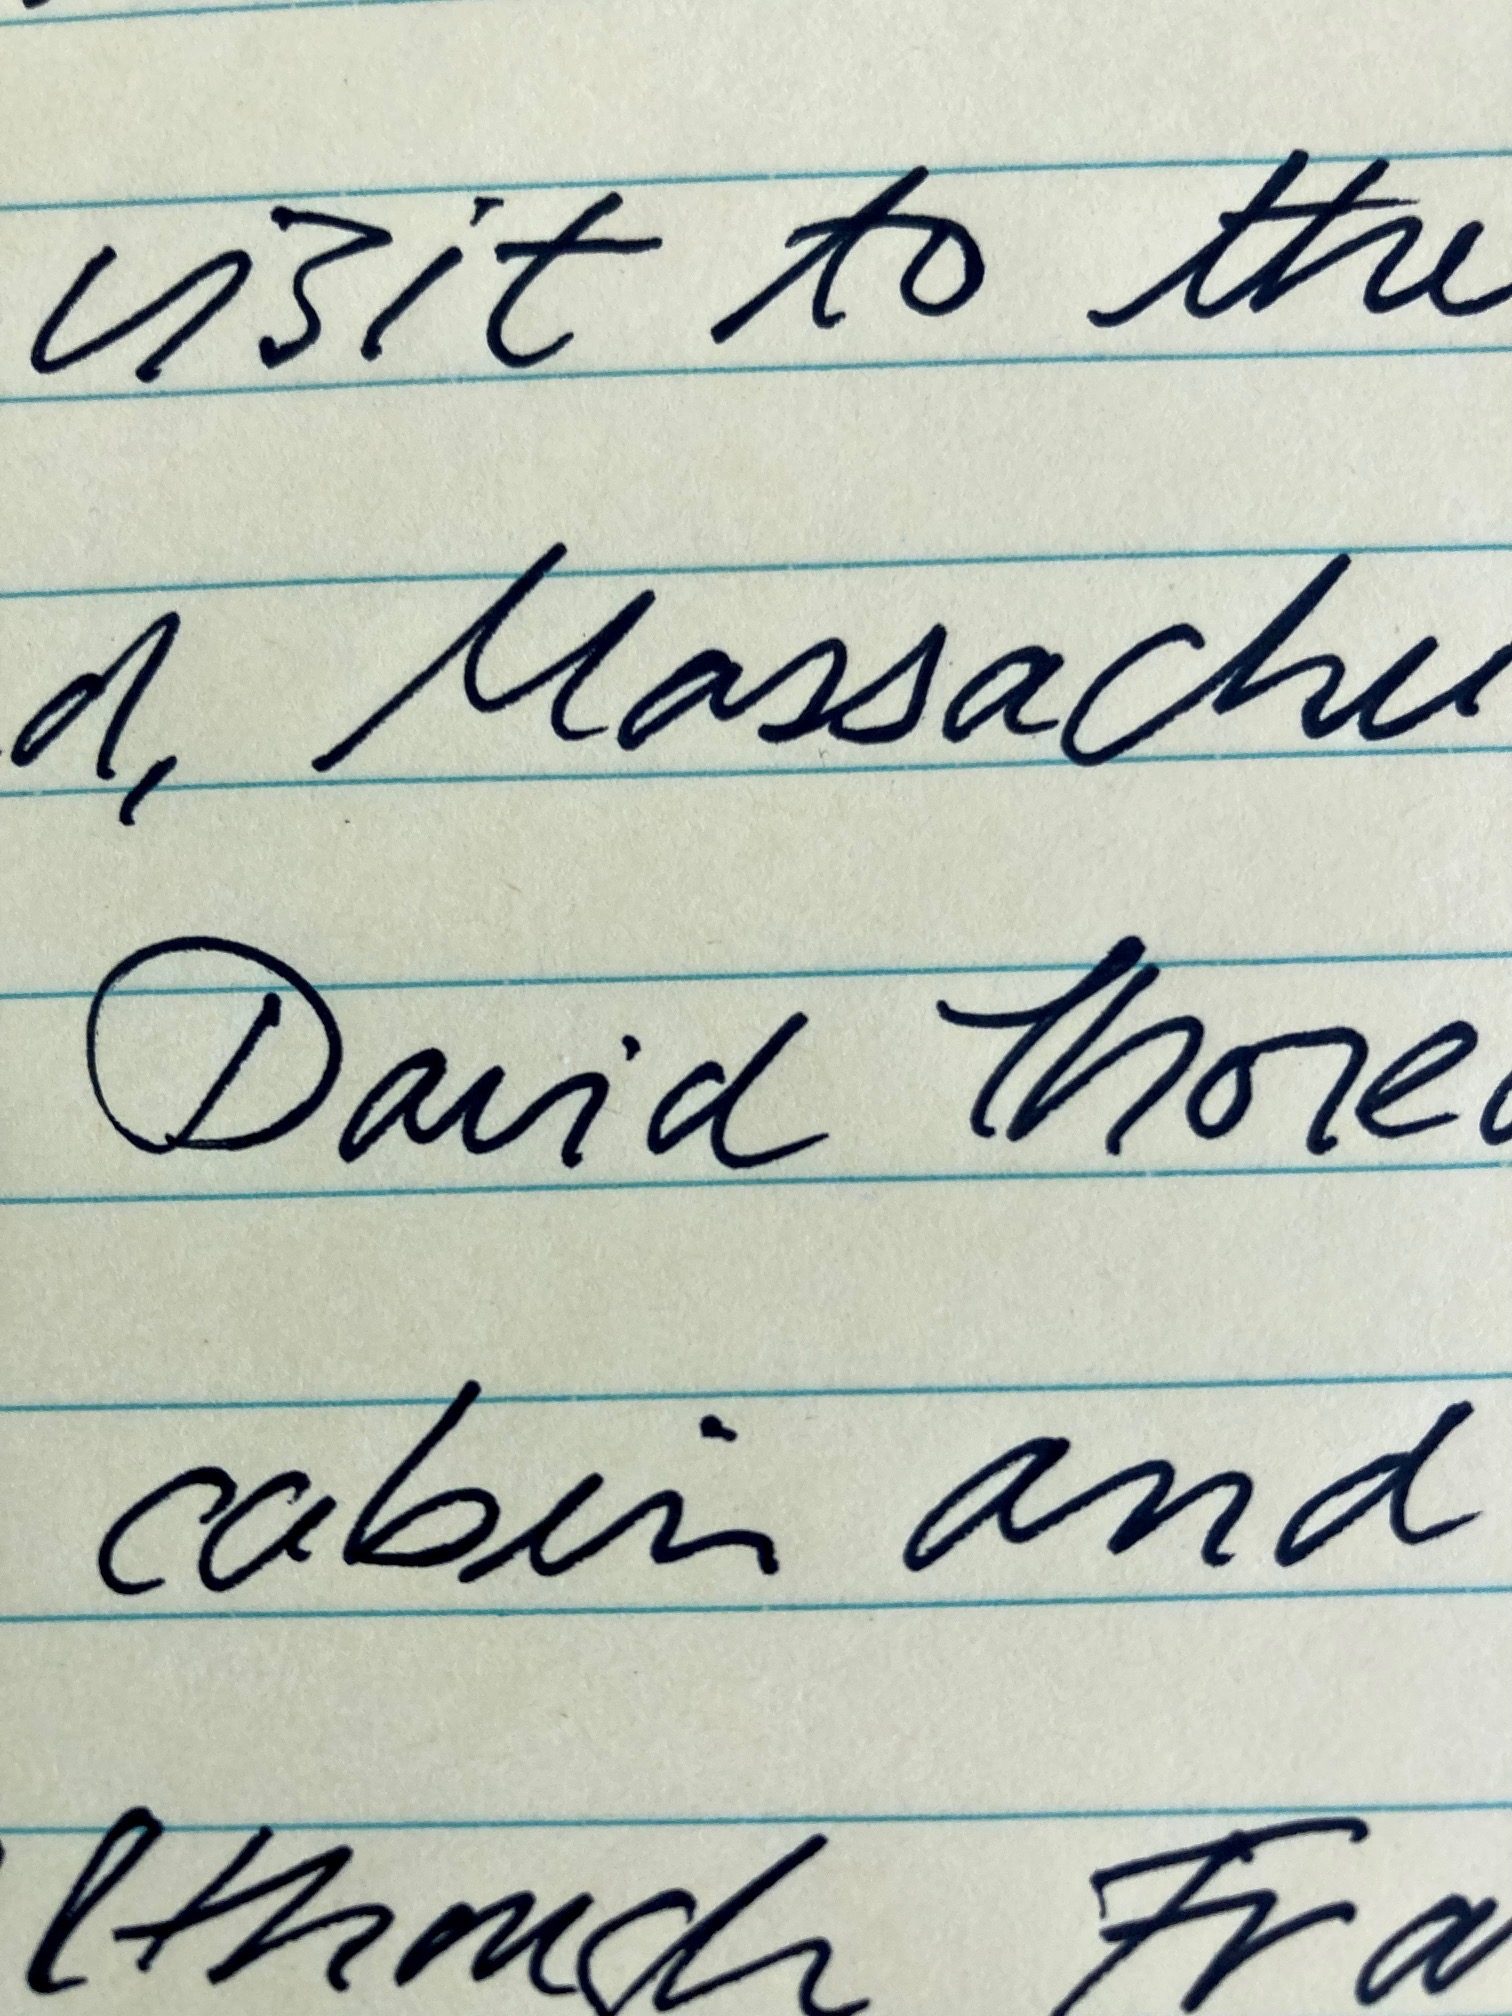 visit to the
d, Massachu
David Thorea
cabin and
lthough Fra